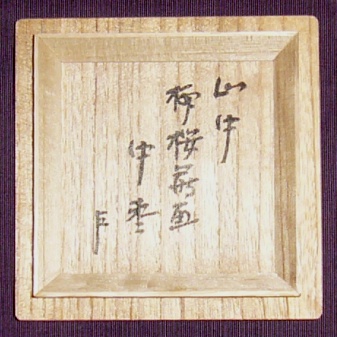 山中
柳桜蒔画
中棗